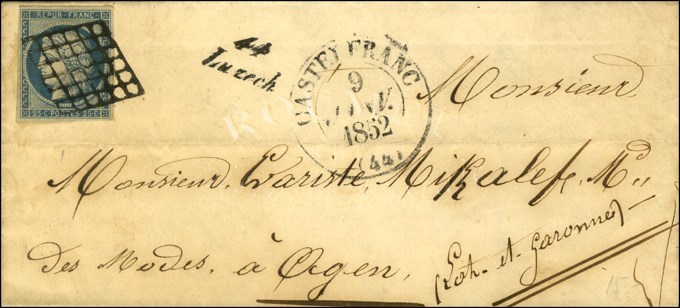 REPUB. FRANC.
25 C POSTES 25 C
44
Luzech
CASTELFRANC
9
JANV.
1852
(44)
ROUMET
Monsieur
Monsieur Evariste Mikalef, Md
des Modes, à Agen,
(Lot-et-Garonne)